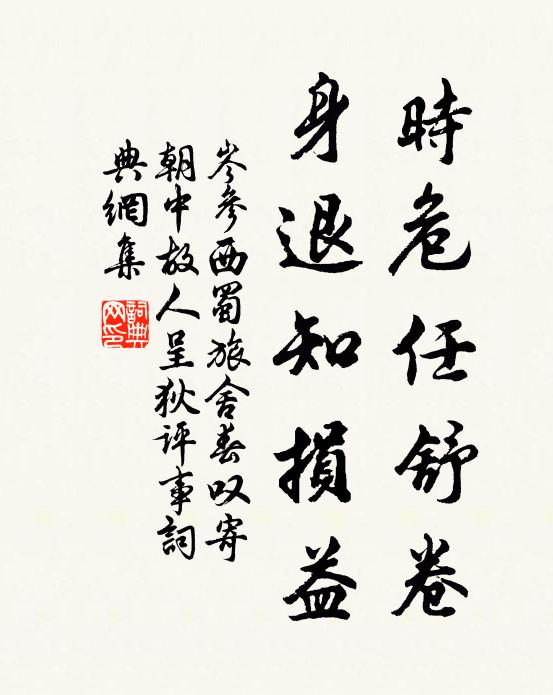 時危任舒卷
身退知損益
岑參西蜀旅舍春叹寄
朝中故人呈狄评事詞
典網集
詞典网印